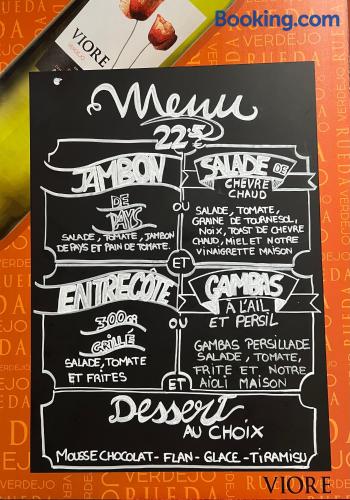 Booking.com
VIORE
VERDEJO
RUEDA
Menu
22,5€
JAMBON
DE
PAYS
SALADE, TOMATE, JAMBON
DE PAYS ET PAIN DE TOMATE.
OU
SALADE DE
CHEVRE
CHAUD
SALADE, TOMATE,
GRAINE DE TOURNESOL,
NOIX, TOAST DE CHEVRE
CHAUD, MIEL ET NOTRE
VINAIGRETTE MAISON
ET
ENTRECÔTE
300G
GRILLÉ
SALADE, TOMATE
ET FRITES
OU
GAMBAS
À L'AIL
ET PERSIL
GAMBAS PERSILLADE
SALADE, TOMATE,
FRITE ET NOTRE
AÏOLI MAISON
ET
Dessert
AU CHOIX
MOUSSE CHOCOLAT - FLAN - GLACE - TIRAMISU
VIORE